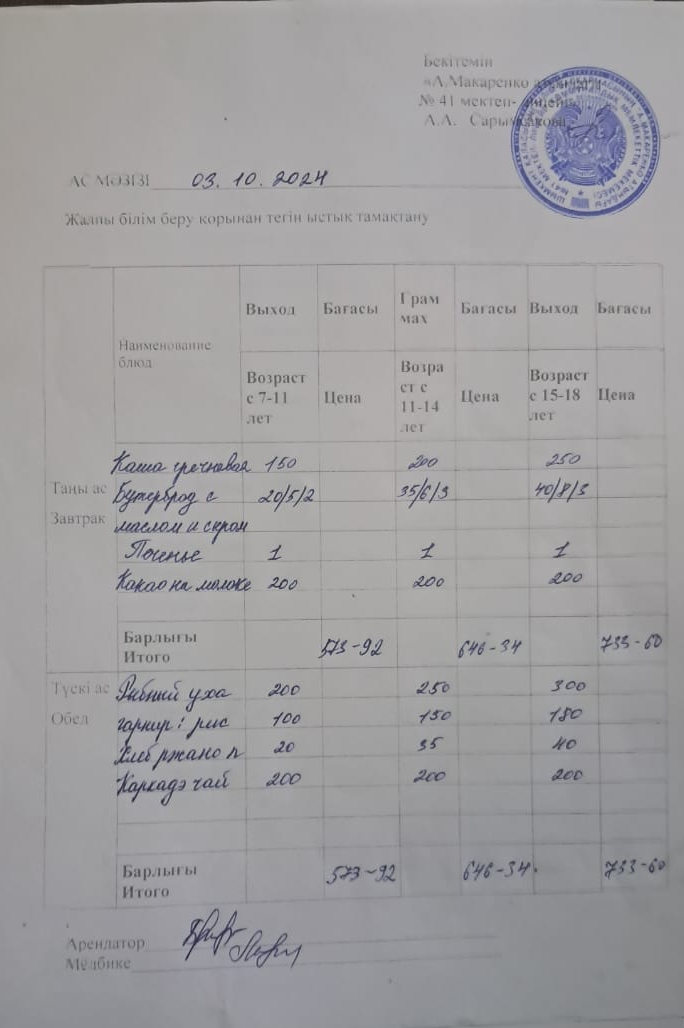 Бекітемін
«А.Макаренко атындағы
№ 41 мектеп- лицейі
А.А. Сарыжакова
АС МӘЗІЗІ 03.10.2024
Жалпы білім беру қорынан тегін ыстық тамақтану
Наименование блюд
Выход Бағасы Грам мах Бағасы Выход Бағасы
Возраст с 7-11 лет Цена Возра ст с 11-14 лет Цена Возраст с 15-18 лет Цена
Таңғы ас
Завтрак
Каша гречневая 150 200 250
Бутерброд с 20/5/2 35/6/3 40/8/3
маслом и сыром
Печенье 1 1 1
Какао на молоке 200 200 200
Барлығы
Итого 573-92 646-34 733-60
Түскі ас
Обед
Рибний уха 200 250 300
гарнир: рис 100 150 180
Хлеб ржано п 20 35 40
Каркадэ чай 200 200 200
Барлығы
Итого 573-92 646-34 733-60
Арендатор
Медбике